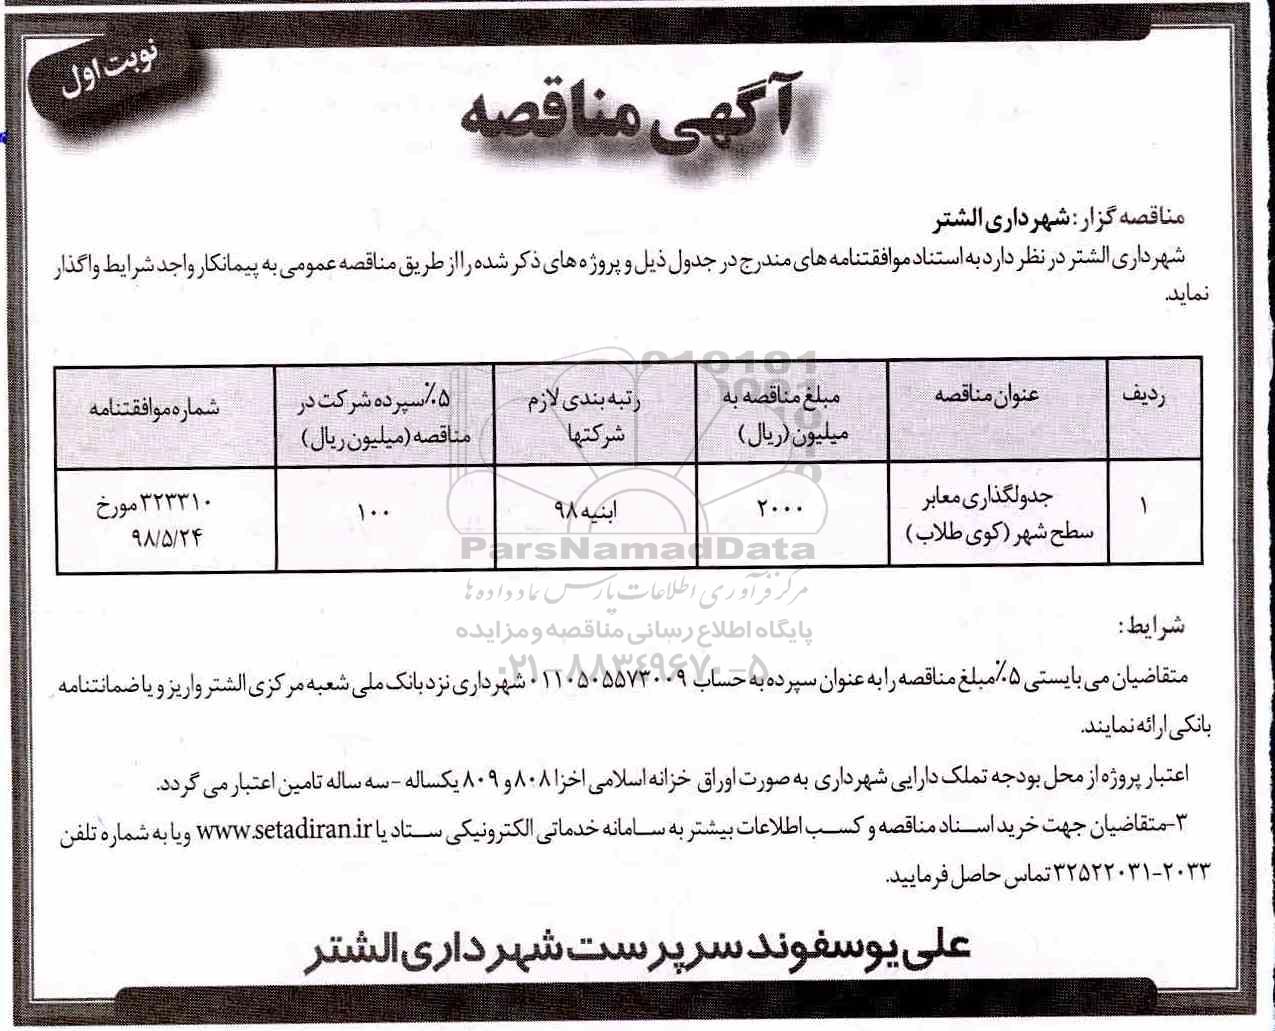 نوبت اول
آگهی مناقصه
مناقصه گزار: شهرداری الشتر
شهرداری الشتر در نظر دارد به استناد موافقتنامه های مندرج در جدول ذیل و پروژه های ذکر شده را از طریق مناقصه عمومی به پیمانکار واجد شرایط واگذار
نماید.
ردیف عنوان مناقصه مبلغ مناقصه به میلیون (ریال) رتبه بندی لازم شرکتها ۵٪ سپرده شرکت در مناقصه (میلیون ریال) شماره موافقتنامه
۱ جدولگذاری معابر سطح شهر (کوی طلاب) ۲۰۰۰ ابنیه ۹۸ ۱۰۰ ۳۲۳۳۱۰ مورخ ۹۸/۵/۲۴
ParsNamadData
مرکز فرآوری اطلاعات پارس نماد داده ها
پایگاه اطلاع رسانی مناقصه و مزایده
۰۲۱-۸۸۳۴۹۶۷۰-۵
شرایط:
متقاضیان می بایستی ۵٪ مبلغ مناقصه را به عنوان سپرده به حساب ۰۱۱۰۵۰۵۵۷۳۰۰۹ شهرداری نزد بانک ملی شعبه مرکزی الشتر واریز و یا ضمانتنامه
بانکی ارائه نمایند.
اعتبار پروژه از محل بودجه تملک دارایی شهرداری به صورت اوراق خزانه اسلامی اخزا ۸۰۸ و ۸۰۹ یکساله - سه ساله تامین اعتبار می گردد.
۳-متقاضیان جهت خرید اسناد مناقصه و کسب اطلاعات بیشتر به سامانه خدماتی الکترونیکی ستاد یا www.setadiran.ir و یا به شماره تلفن
۳۲۵۲۲۰۳۱-۲۰۳۳ تماس حاصل فرمایید.
علی یوسفوند سرپرست شهرداری الشتر